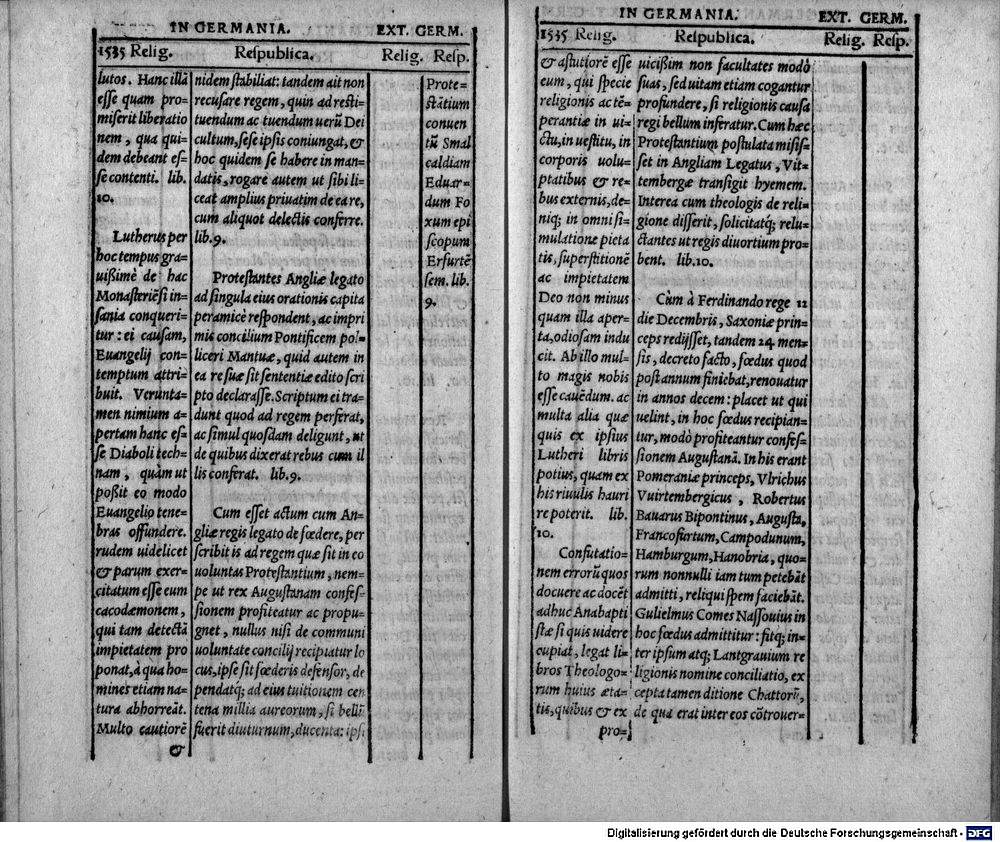 IN GERMANIA. EXT. GERM.
1535 Relig. Reſpublica. Relig. Reſp.
lutos. Hanc illā
eſſe quam pro-
miſerit liberatio
nem, qua qui-
dem debeant eſ-
ſe contenti. lib.
10.
Lutherus per
hoc tempus gra-
uißimè de hac
Monaſteriēſi in-
ſania conqueri-
tur: ei cauſam,
Euangelij con-
temptum attri-
buit. Verunta-
men nimium a-
pertam hanc eſ-
ſe Diaboli tech-
nam, quàm ut
poßit eo modo
Euangelio tene-
bras offundere.
rudem uidelicet
& parum exer-
citatum eſſe eum
cacodæmonem,
qui tam detectā
impietatem pro
ponat, à qua ho-
mines etiam na-
tura abhorreāt.
Multo cautiorē
&
nidem ſtabiliat: tandem ait non
recuſare regem, quin ad reſti-
tuendum ac tuendum uerū Dei
cultum, ſeſe ipſis coniungat, &
hoc quidem ſe habere in man-
datis, rogare autem ut ſibi li-
ceat amplius priuatim de ea re,
cum aliquot delectis conferre.
lib. 9.
Proteſtantes Angliæ legato
ad ſingula eius orationis capita
peramicè reſpondent, ac impri
mis concilium Pontificem pol-
liceri Mantuæ, quid autem in
ea re ſuæ ſit ſententiæ edito ſcri
pto declaraſſe. Scriptum ei tra-
dunt quod ad regem perferat,
ac ſimul quoſdam deligunt, ut
de quibus dixerat rebus cum il
lis conferat. lib. 9.
Cum eſſet actum cum An-
gliæ regis legato de fœdere, per
ſcribit is ad regem quæ ſit in eo
uoluntas Proteſtantium, nem-
pe ut rex Auguſtanam confeſ-
ſionem profiteatur ac propu-
gnet, nullus niſi de communi
uoluntate concilij recipiatur lo
cus, ipſe ſit fœderis defenſor, de
pendatq; ad eius tuitionem cen
tena millia aureorum, ſi bellū
fuerit diuturnum, ducenta: ipſi
Prote-
ſtātium
conuen
tū Smal
caldiam
Eduar-
dum Fo
xum epi
ſcopum
Erfurtē
ſem. lib.
9.
IN GERMANIA. EXT. GERM.
1535 Relig. Reſpublica. Relig. Reſp.
& aſtutiorē eſſe
eum, qui ſpecie
religionis ac tē-
perantiæ in ui-
ctu, in ueſtitu, in
corporis uolu-
ptatibus & re-
bus externis, de-
niq; in omni ſi-
mulatione pieta
tis, ſuperſtitionē
ac impietatem
Deo non minus
quam illa aper-
ta, odioſam indu
cit. Ab illo mul-
to magis nobis
eſſe cauēdum. ac
multa alia quæ
quis ex ipſius
Lutheri libris
potius, quam ex
his riuulis hauri
re poterit. lib.
10.
Confutatio-
nem errorū quos
docuere ac docēt
adhuc Anabapti
ſtæ ſi quis uidere
cupiat, legat li-
bros Theologo-
rum huius æta-
tis, quibus & ex
uicißim non facultates modò
ſuas, ſed uitam etiam cogantur
profundere, ſi religionis cauſa
regi bellum inferatur. Cum hæc
Proteſtantium poſtulata miſiſ-
ſet in Angliam Legatus, Vit-
tembergæ tranſigit hyemem.
Interea cum theologis de reli-
gione diſſerit, ſolicitatq; relu-
ctantes ut regis diuortium pro-
bent. lib. 10.
Cùm à Ferdinando rege 12
die Decembris, Saxoniæ prin-
ceps redijſſet, tandem 24 men-
ſis, decreto facto, fœdus quod
poſt annum finiebat, renouatur
in annos decem: placet ut qui
uelint, in hoc fœdus recipian-
tur, modò profiteantur confeſ-
ſionem Auguſtanā. In his erant
Pomeraniæ princeps, Vlrichus
Vuirtembergicus, Robertus
Bauarus Bipontinus, Auguſta,
Francofurtum, Campodunum,
Hamburgum, Hanobria, quo-
rum nonnulli iam tum petebāt
admitti, reliqui ſpem faciebāt.
Gulielmus Comes Naſſouius in
hoc fœdus admittitur: fitq; in-
ter ipſum atq; Lantgrauium re
ligionis nomine conciliatio, ex
cepta tamen ditione Chattorū,
de qua erat inter eos cōtrouer-
pro-
Digitalisierung gefördert durch die Deutsche Forschungsgemeinschaft - DFG